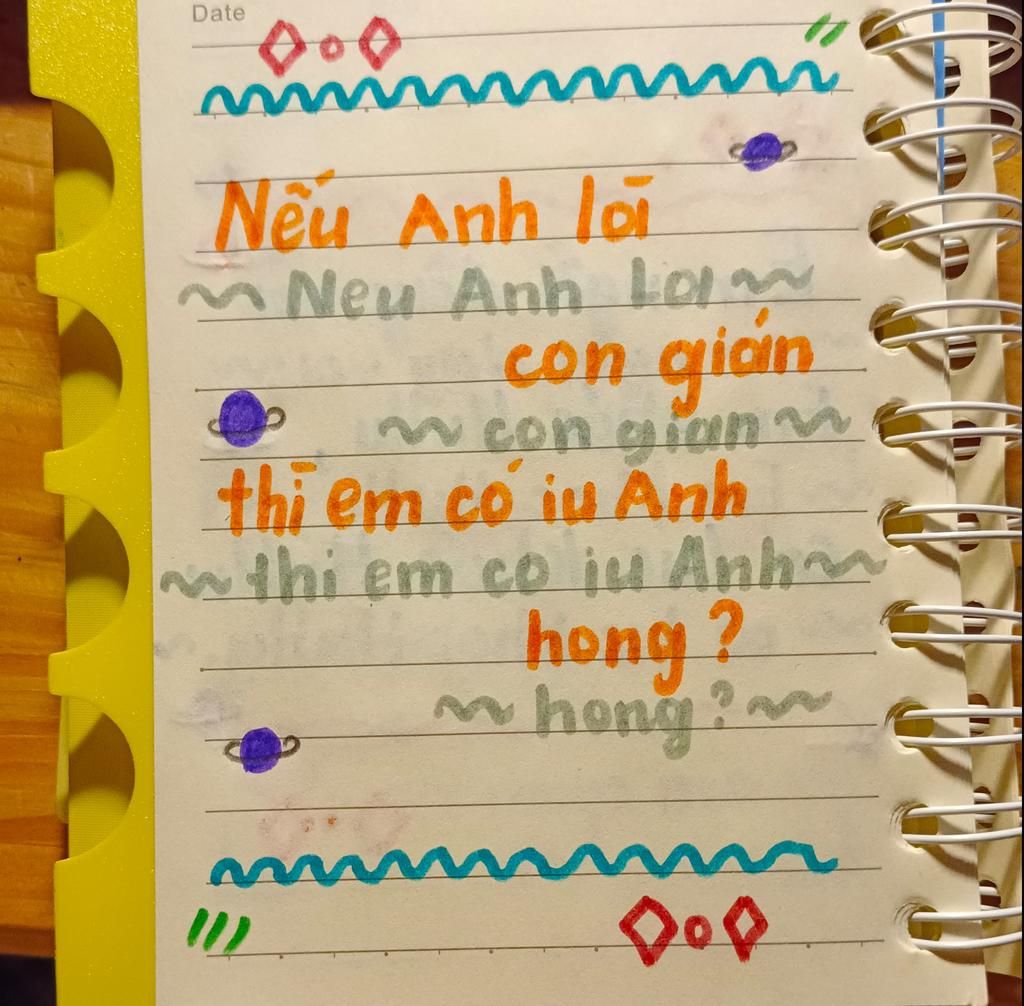 Date
Nếu Anh là
~ Neu Anh La ~
con gián
~ con gian ~
thì em có iu Anh
~ thi em co iu Anh ~
hong?
~ hong? ~